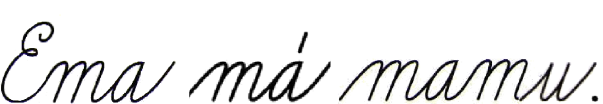 Ema má mamu.